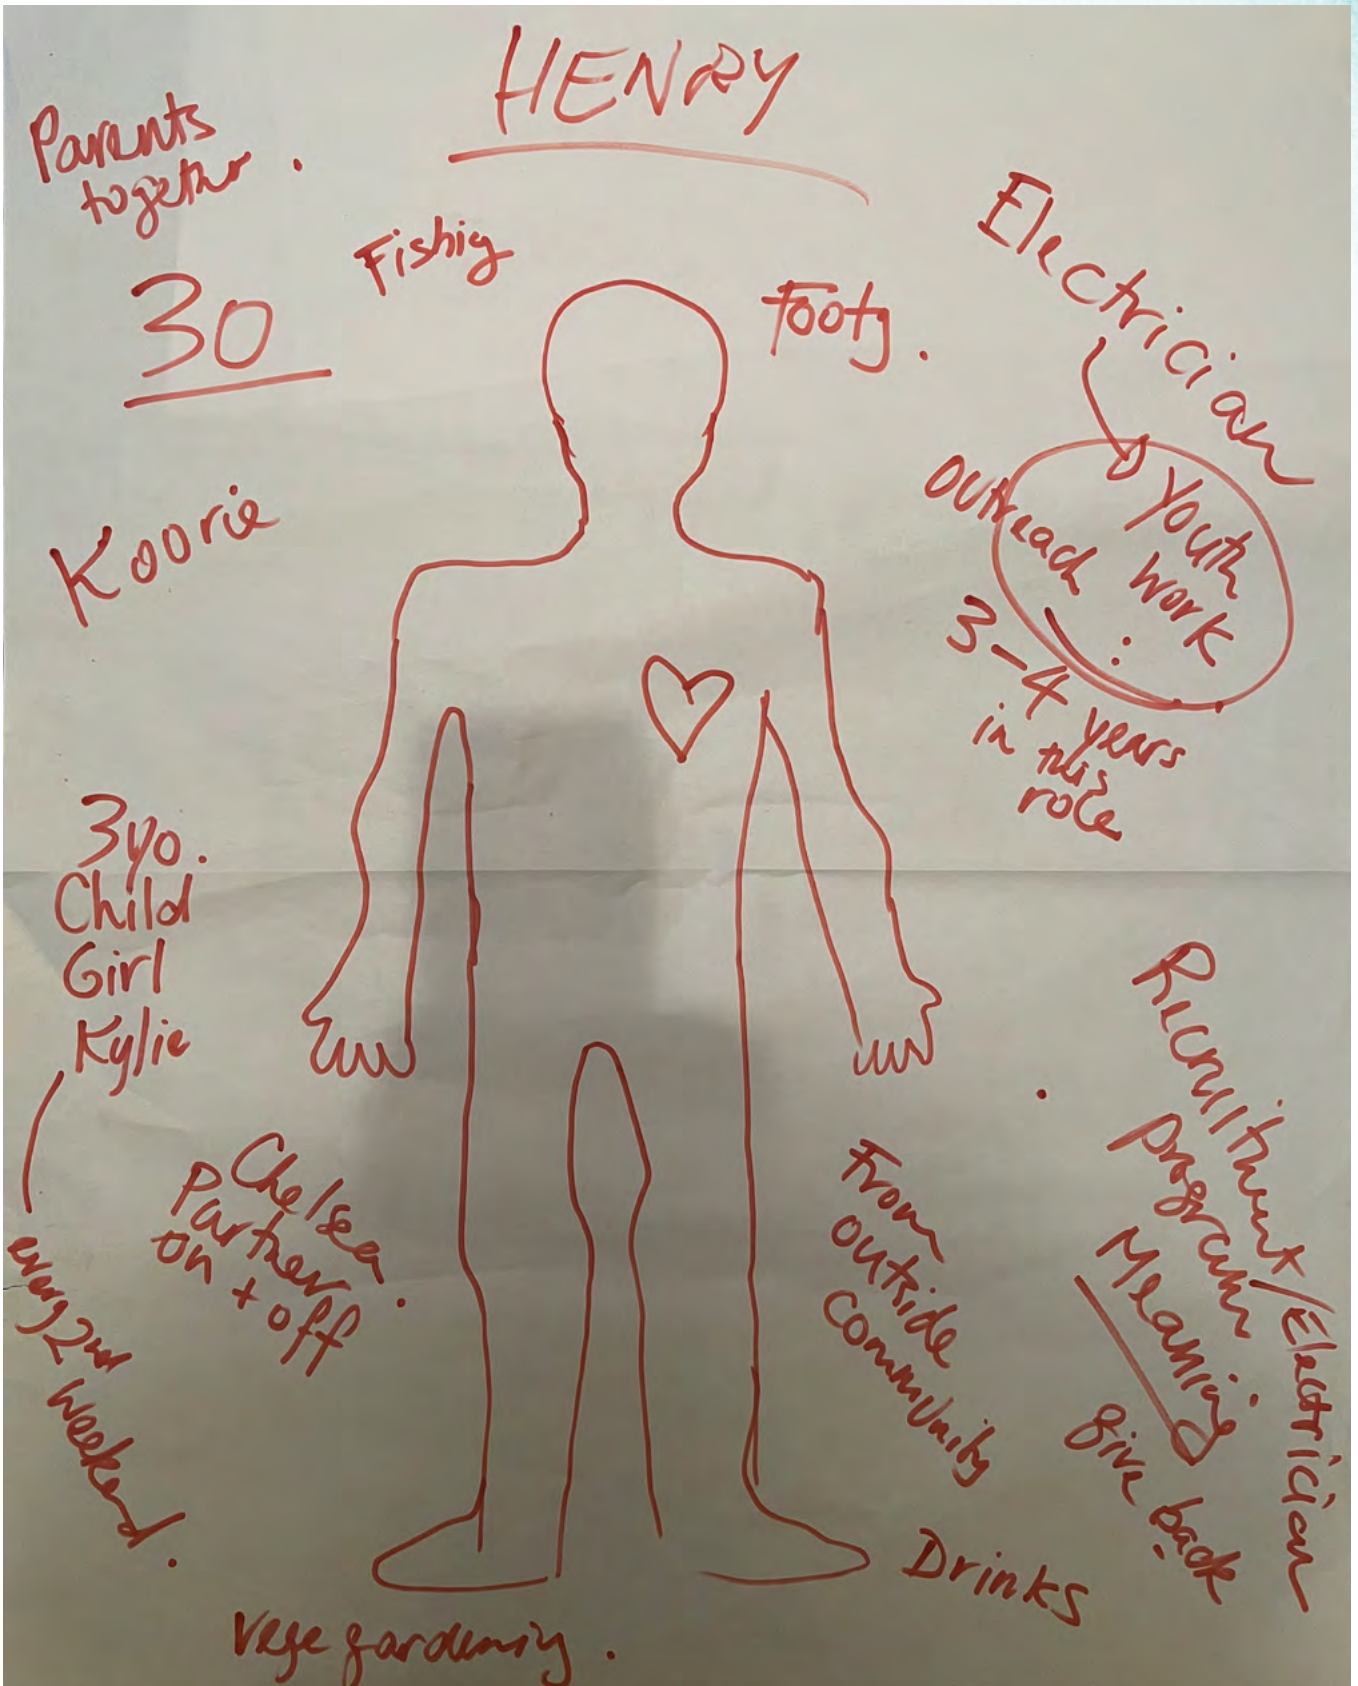 HENRY
Parents
together.
30
Fishig
Footy.
Electrician
Youth
Work
Outreach :
3-4 years
in this
role
Koorie
3yo.
Child
Girl
Kylie
every 2nd
weekend.
Chelsea
Partner.
on + off
From
outside
community
Recruitment/Electrician
program
Meaning
give back
Drinks
Vege gardening.